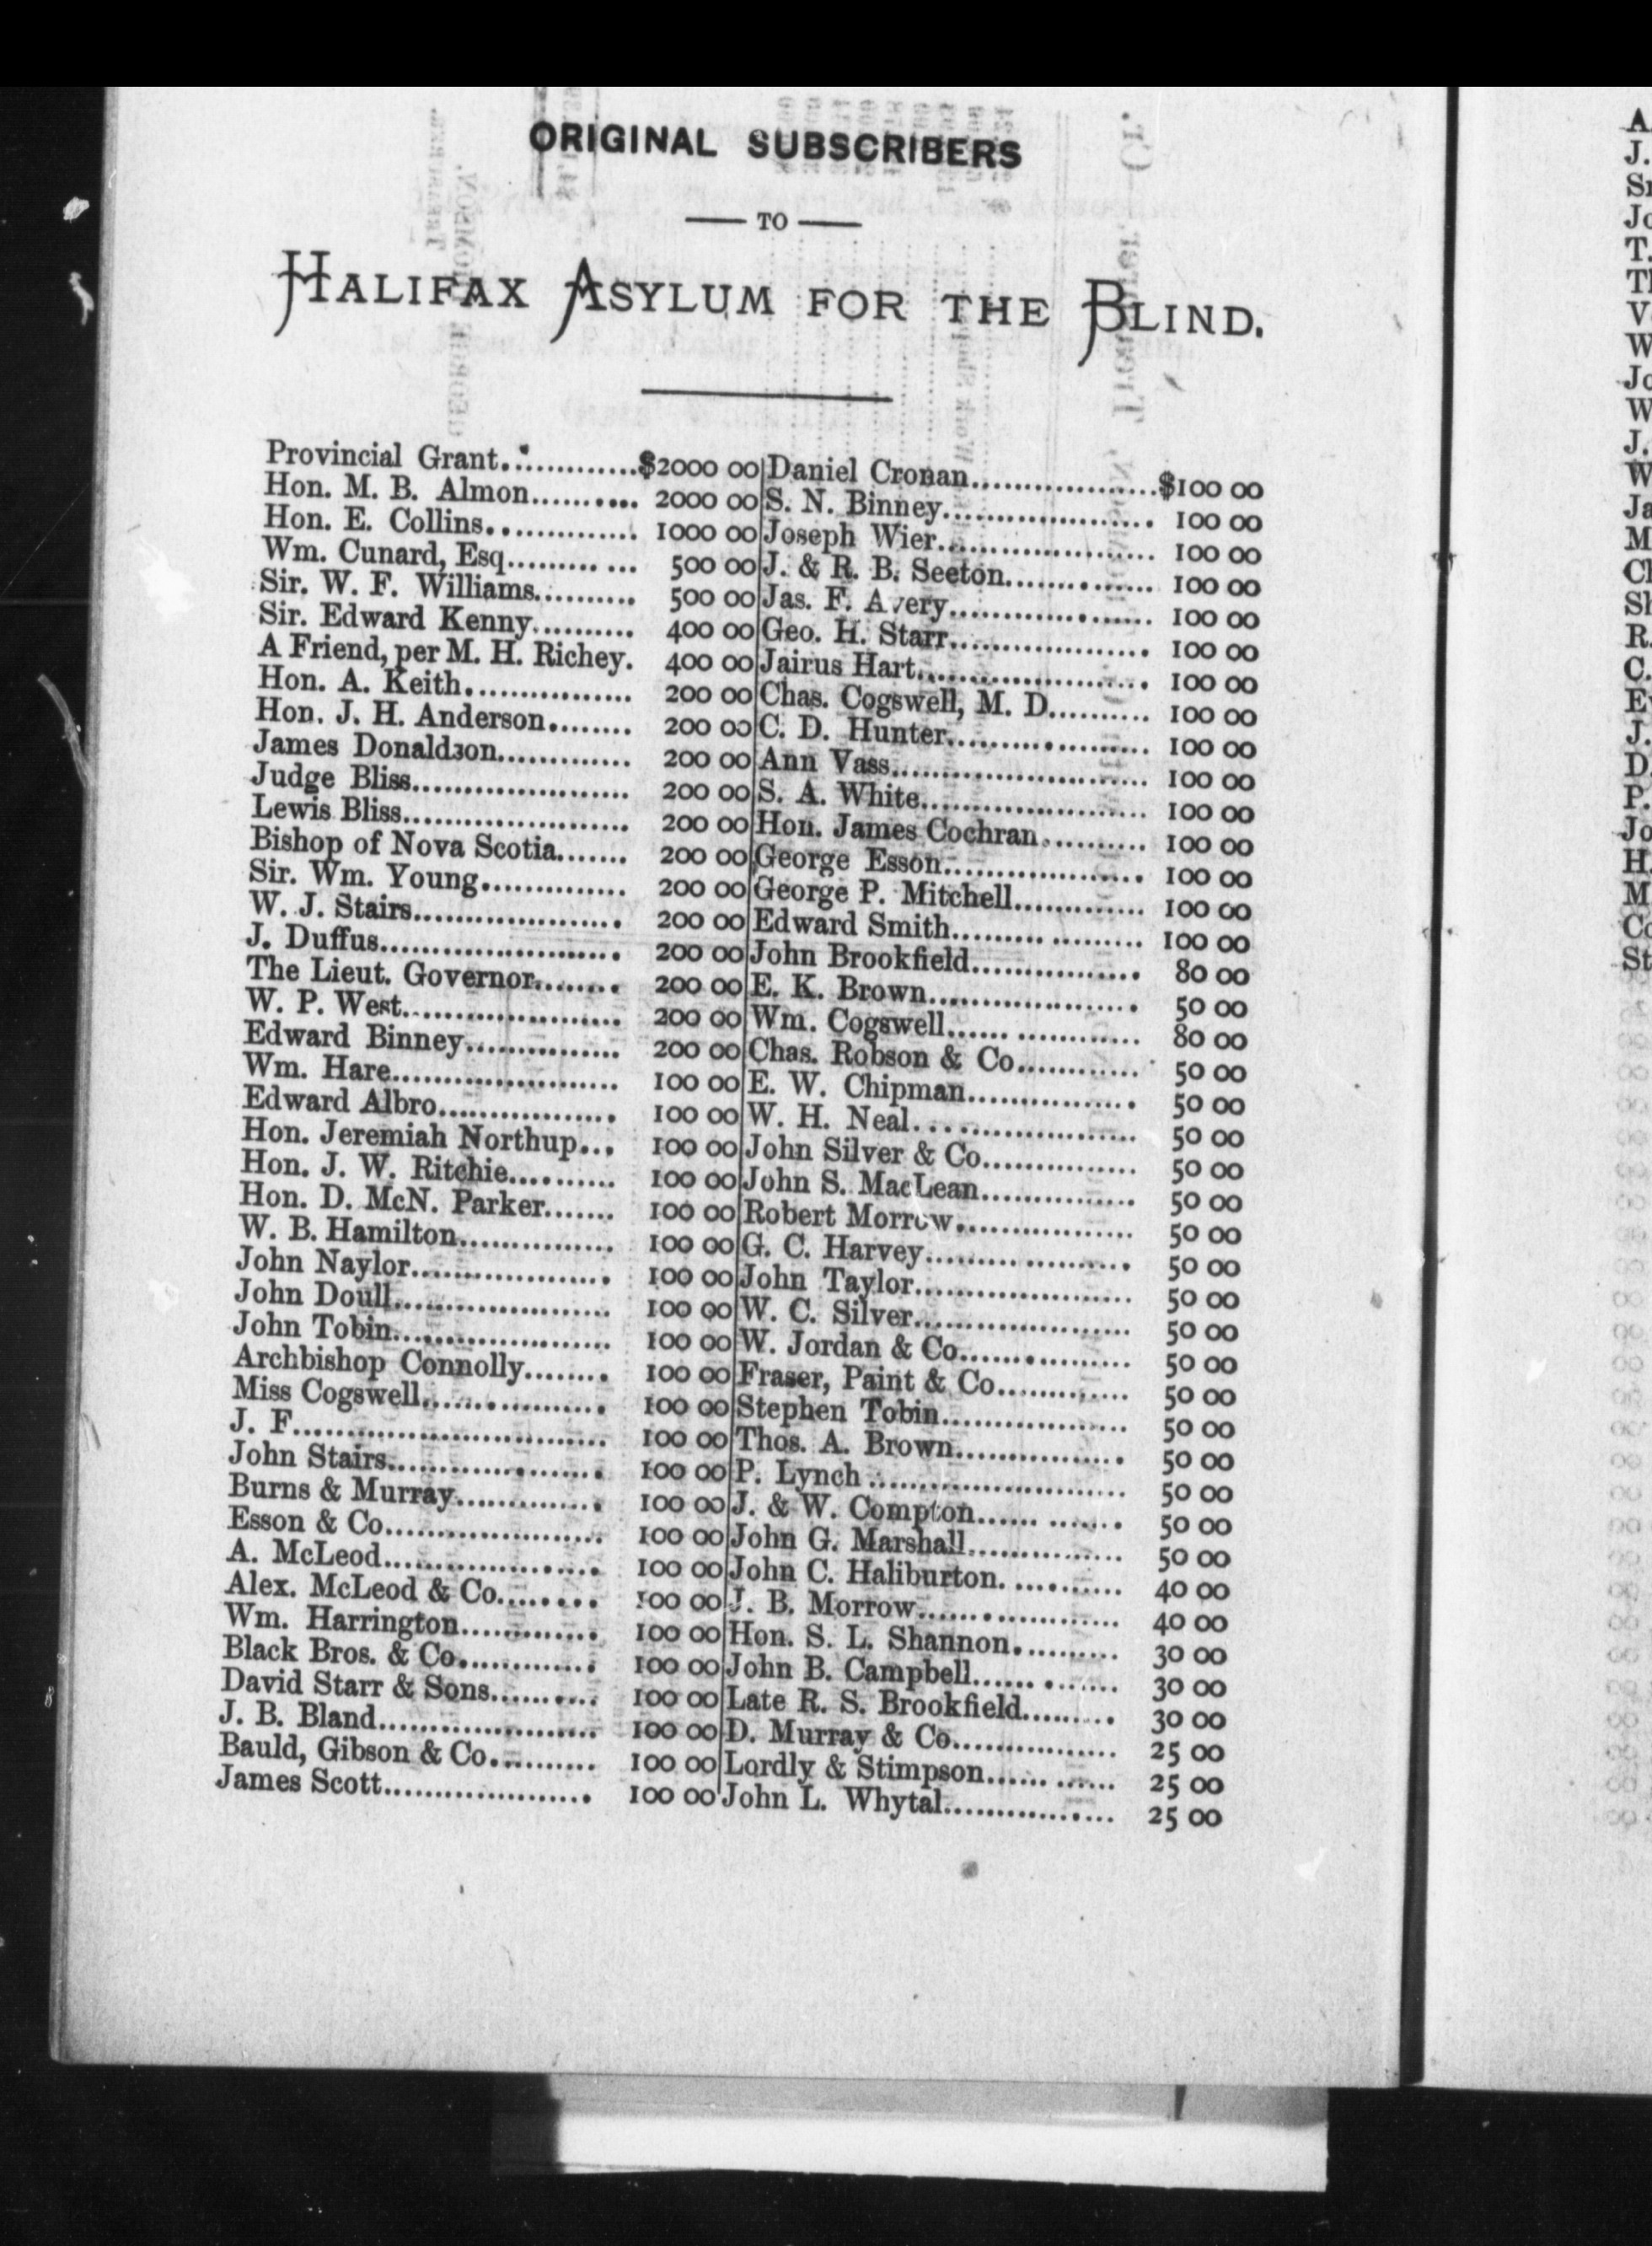 ORIGINAL SUBSCRIBERS
— TO —
HALIFAX ASYLUM FOR THE BLIND.
Provincial Grant.............$2000 00
Hon. M. B. Almon.......... 2000 00
Hon. E. Collins.............. 1000 00
Wm. Cunard, Esq......... ... 500 00
Sir. W. F. Williams.......... 500 00
Sir. Edward Kenny.......... 400 00
A Friend, per M. H. Richey. 400 00
Hon. A. Keith................ 200 00
Hon. J. H. Anderson........ 200 00
James Donaldson............. 200 00
Judge Bliss...................... 200 00
Lewis Bliss...................... 200 00
Bishop of Nova Scotia....... 200 00
Sir. Wm. Young.............. 200 00
W. J. Stairs..................... 200 00
J. Duffus........................ 200 00
The Lieut. Governor......... 200 00
W. P. West...................... 200 00
Edward Binney............... 200 00
Wm. Hare....................... 100 00
Edward Albro................. 100 00
Hon. Jeremiah Northup... 100 00
Hon. J. W. Ritchie.......... 100 00
Hon. D. McN. Parker....... 100 00
W. B. Hamilton............... 100 00
John Naylor.................... 100 00
John Doull...................... 100 00
John Tobin...................... 100 00
Archbishop Connolly........ 100 00
Miss Cogswell.................. 100 00
J. F............................... 100 00
John Stairs...................... 100 00
Burns & Murray.............. 100 00
Esson & Co...................... 100 00
A. McLeod...................... 100 00
Alex. McLeod & Co......... 100 00
Wm. Harrington............. 100 00
Black Bros. & Co............. 100 00
David Starr & Sons.......... 100 00
J. B. Bland...................... 100 00
Bauld, Gibson & Co.......... 100 00
James Scott..................... 100 00
Daniel Cronan..................$100 00
S. N. Binney..................... 100 00
Joseph Wier...................... 100 00
J. & R. B. Seeton............... 100 00
Jas. F. Avery..................... 100 00
Geo. H. Starr.................... 100 00
Jairus Hart....................... 100 00
Chas. Cogswell, M. D.......... 100 00
C. D. Hunter.................... 100 00
Ann Vass......................... 100 00
S. A. White...................... 100 00
Hon. James Cochran.......... 100 00
George Esson.................... 100 00
George P. Mitchell............. 100 00
Edward Smith......... ......... 100 00
John Brookfield................ 80 00
E. K. Brown..................... 50 00
Wm. Cogswell...... ............ 80 00
Chas. Robson & Co............ 50 00
E. W. Chipman................ 50 00
W. H. Neal...................... 50 00
John Silver & Co............... 50 00
John S. MacLean............... 50 00
Robert Morrow................. 50 00
G. C. Harvey......... .......... 50 00
John Taylor..................... 50 00
W. C. Silver..................... 50 00
W. Jordan & Co................ 50 00
Fraser, Paint & Co............. 50 00
Stephen Tobin.................. 50 00
Thos. A. Brown................ 50 00
P. Lynch ......................... 50 00
J. & W. Compton...... ....... 50 00
John G. Marshall............... 50 00
John C. Haliburton. .......... 40 00
J. B. Morrow.................... 40 00
Hon. S. L. Shannon.......... 30 00
John B. Campbell...... ....... 30 00
Late R. S. Brookfield......... 30 00
D. Murray & Co................ 25 00
Lordly & Stimpson...... ...... 25 00
John L. Whytal................. 25 00